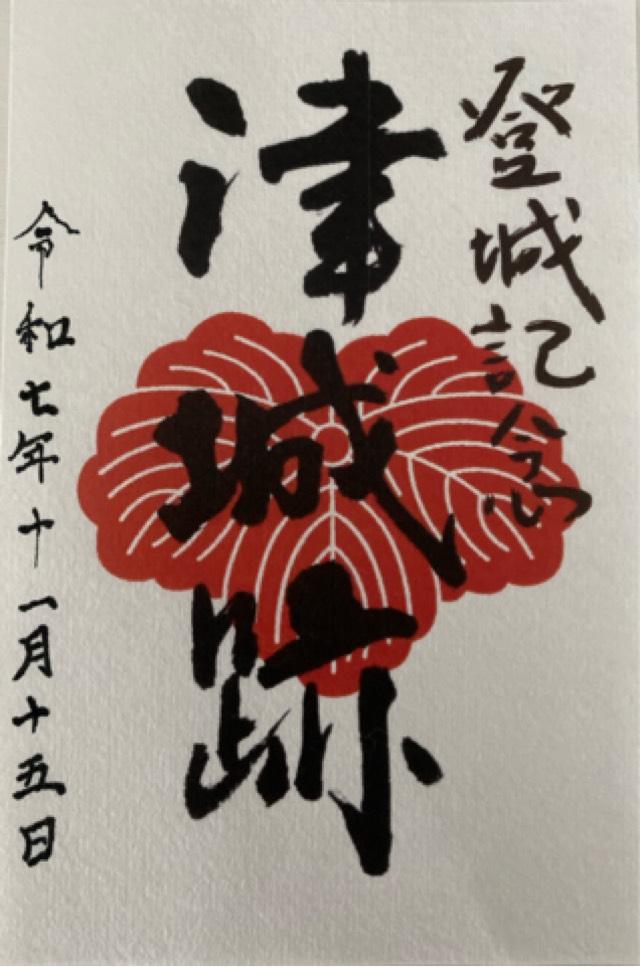 登城記念
津城跡
令和七年十一月十五日